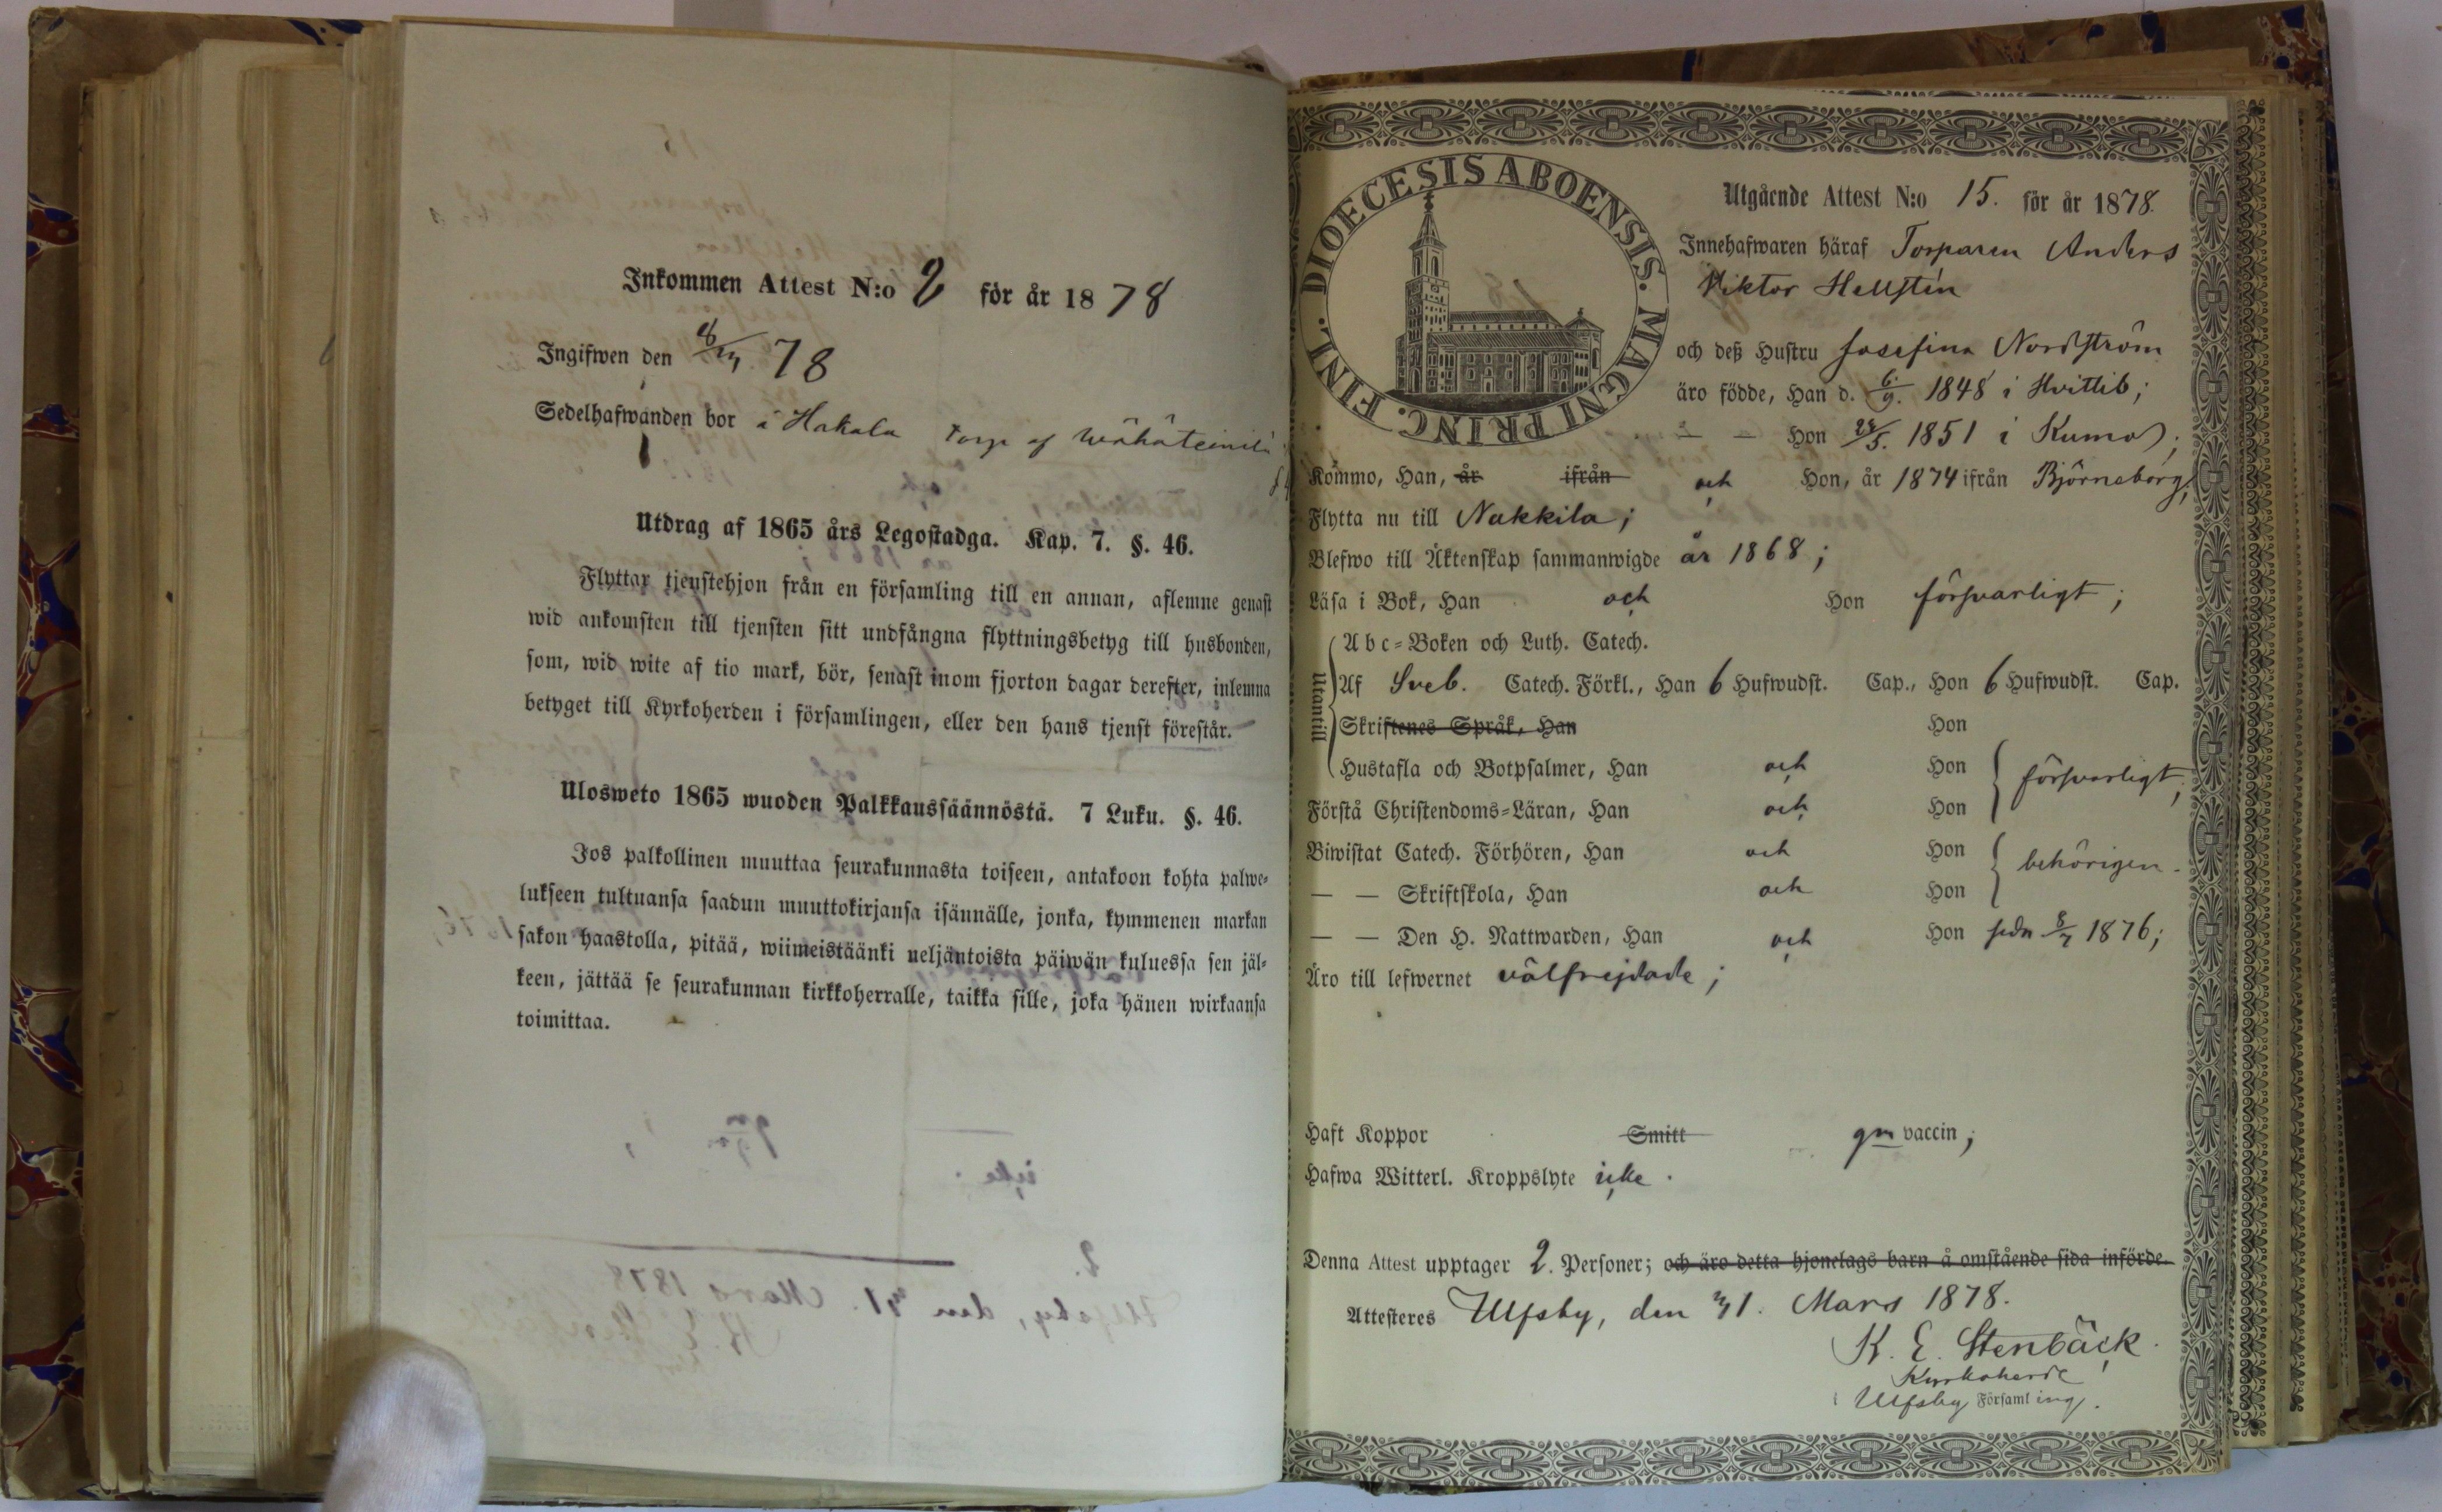 Inkommen Attest N:o 2 för år 1878
Ingifwen den 8/4 78
Sedelhafwanden bor å Hakala torp af
Utdrag af 1865 års Legostadga. Kap. 7. §. 46.
Flyttar tjenstehjon från en församling till en annan, aflemne genast
wid ankomsten till tjensten sitt undfångna flyttningsbetyg till husbonden,
som, wid wite af tio mark, bör, senast inom fjorton dagar derefter, inlemna
betyget till Kyrkoherden i församlingen, eller den hans tjenst förestår.
Ulosweto 1865 wuoden Palkkaussäännöstä. 7 Luku. §. 46.
Jos palkollinen muuttaa seurakunnasta toiseen, antakoon kohta palwe-
lukseen tultuansa saadun muuttokirjansa isännälle, jonka, kymmenen markan
sakon haastolla, pitää, wiimeistäänki neljäntoista päiwän kuluessa sen jäl-
keen, jättää se seurakunnan kirkkoherralle, taikka sille, joka hänen wirkaansa
toimittaa.
DIOECESIS ABOENSIS. MAGNI PRINC. FINL.
Utgående Attest N:o 15. för år 1878.
Innehafwaren häraf Torparen Anders
Viktor Hellstén
och deß Hustru Josefina Nordström
äro födde, Han d. 6/9. 1848 i Hvittib;
— — Hon 1851 i Kumo;
Kommo, Han, år ifrån och Hon, år 1874 ifrån Björneborg;
Flytta nu till Nakkila;
Blefwo till Äktenskap sammanwigde år 1868;
Läsa i Bok, Han och Hon försvarligt;
Utantill
Abc-Boken och Luth. Catech.
Af Sveb. Catech. Förkl., Han 6 Hufwudst. Cap., Hon 6 Hufwudst. Cap.
Skriftenes Språk, Han Hon
Hustafla och Botpsalmer, Han och Hon försvarligt;
Förstå Christendoms-Läran, Han och Hon
Biwistat Catech. Förhören, Han och Hon behörigen.
— — Skriftskola, Han och Hon
— — Den H. Nattwarden, Han och Hon sedn 8/7 1876;
Äro till lefwernet välfrejdade;
Haft Koppor Smitt gm vaccin;
Hafwa Witterl. Kroppslyte icke.
Denna Attest upptager 2. Personer; och äro detta hjonelags barn å omstående sida införde.
Attesteres Ulfsby, den 31. Mars 1878.
K. E. Stenbäck.
Kyrkoherde
i Ulfsby Församling.